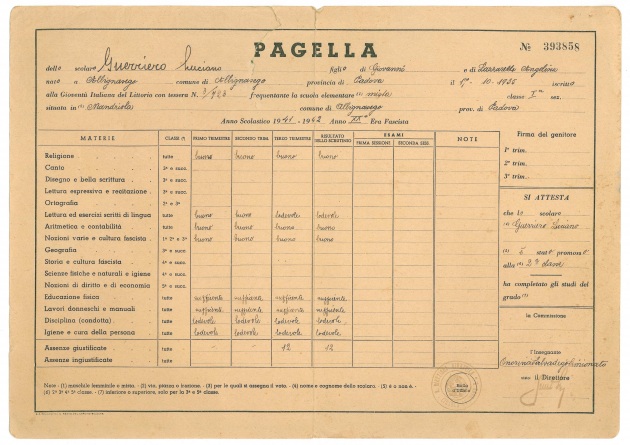 PAGELLA
№ 393858
dello scolaro Guerriero Luciano figlio di Giovanni e di Angelina
nato a Albignasego comune di Albignasego provincia di Padova il 10 - 1935 iscritto
alla Gioventù Italiana del Littorio con tessera N. frequentante la scuola elementare (1) mista classe Iª sez.
situata in (2) Mandriola comune di Albignasego prov. di Padova
Anno Scolastico 1941 - 1942 Anno XXº Era Fascista
MATERIE CLASSI (7) PRIMO TRIMESTRE SECONDO TRIM. TERZO TRIMESTRE RISULTATO DELLO SCRUTINIO ESAMI PRIMA SESSIONE SECONDA SESS. NOTE
Religione tutte buono buono buono buono
Canto 3ª e succ.
Disegno e bella scrittura 3ª e succ.
Lettura espressiva e recitazione 3ª e succ.
Ortografia 2ª e 3ª
Lettura ed esercizi scritti di lingua tutte buono buono lodevole lodevole
Aritmetica e contabilità tutte buono buono buono buono
Nozioni varie e cultura fascista 1ª 2ª e 3ª buono buono buono buono
Geografia 3ª e succ.
Storia e cultura fascista 4ª e succ.
Scienze fisiche e naturali e igiene 4ª e succ.
Nozioni di diritto e di economia 5ª e succ.
Educazione fisica tutte sufficiente sufficiente sufficiente sufficiente
Lavori donneschi e manuali tutte sufficiente sufficiente sufficiente sufficiente
Disciplina (condotta) tutte lodevole lodevole lodevole lodevole
Igiene e cura della persona tutte lodevole lodevole lodevole lodevole
Assenze giustificate tutte - - 12 12
Assenze ingiustificate tutte
Firma del genitore
1º trim.
2º trim.
3º trim.
SI ATTESTA
che lo scolaro
Guerriero Luciano
(5) è stato promosso
alla (6) 2ª classe
ha completato gli studi del
grado (7)
La Commissione
L'Insegnante
Il Direttore
Note - (1) maschile femminile e mista. - (2) via, piazza o frazione. - (3) per le quali si assegna il voto. - (4) nome e cognome dello scolaro. - (5) è o non è. -
(6) 2ª 3ª 4ª 5ª classe. - (7) inferiore o superiore, solo per la 3ª e 5ª classe.